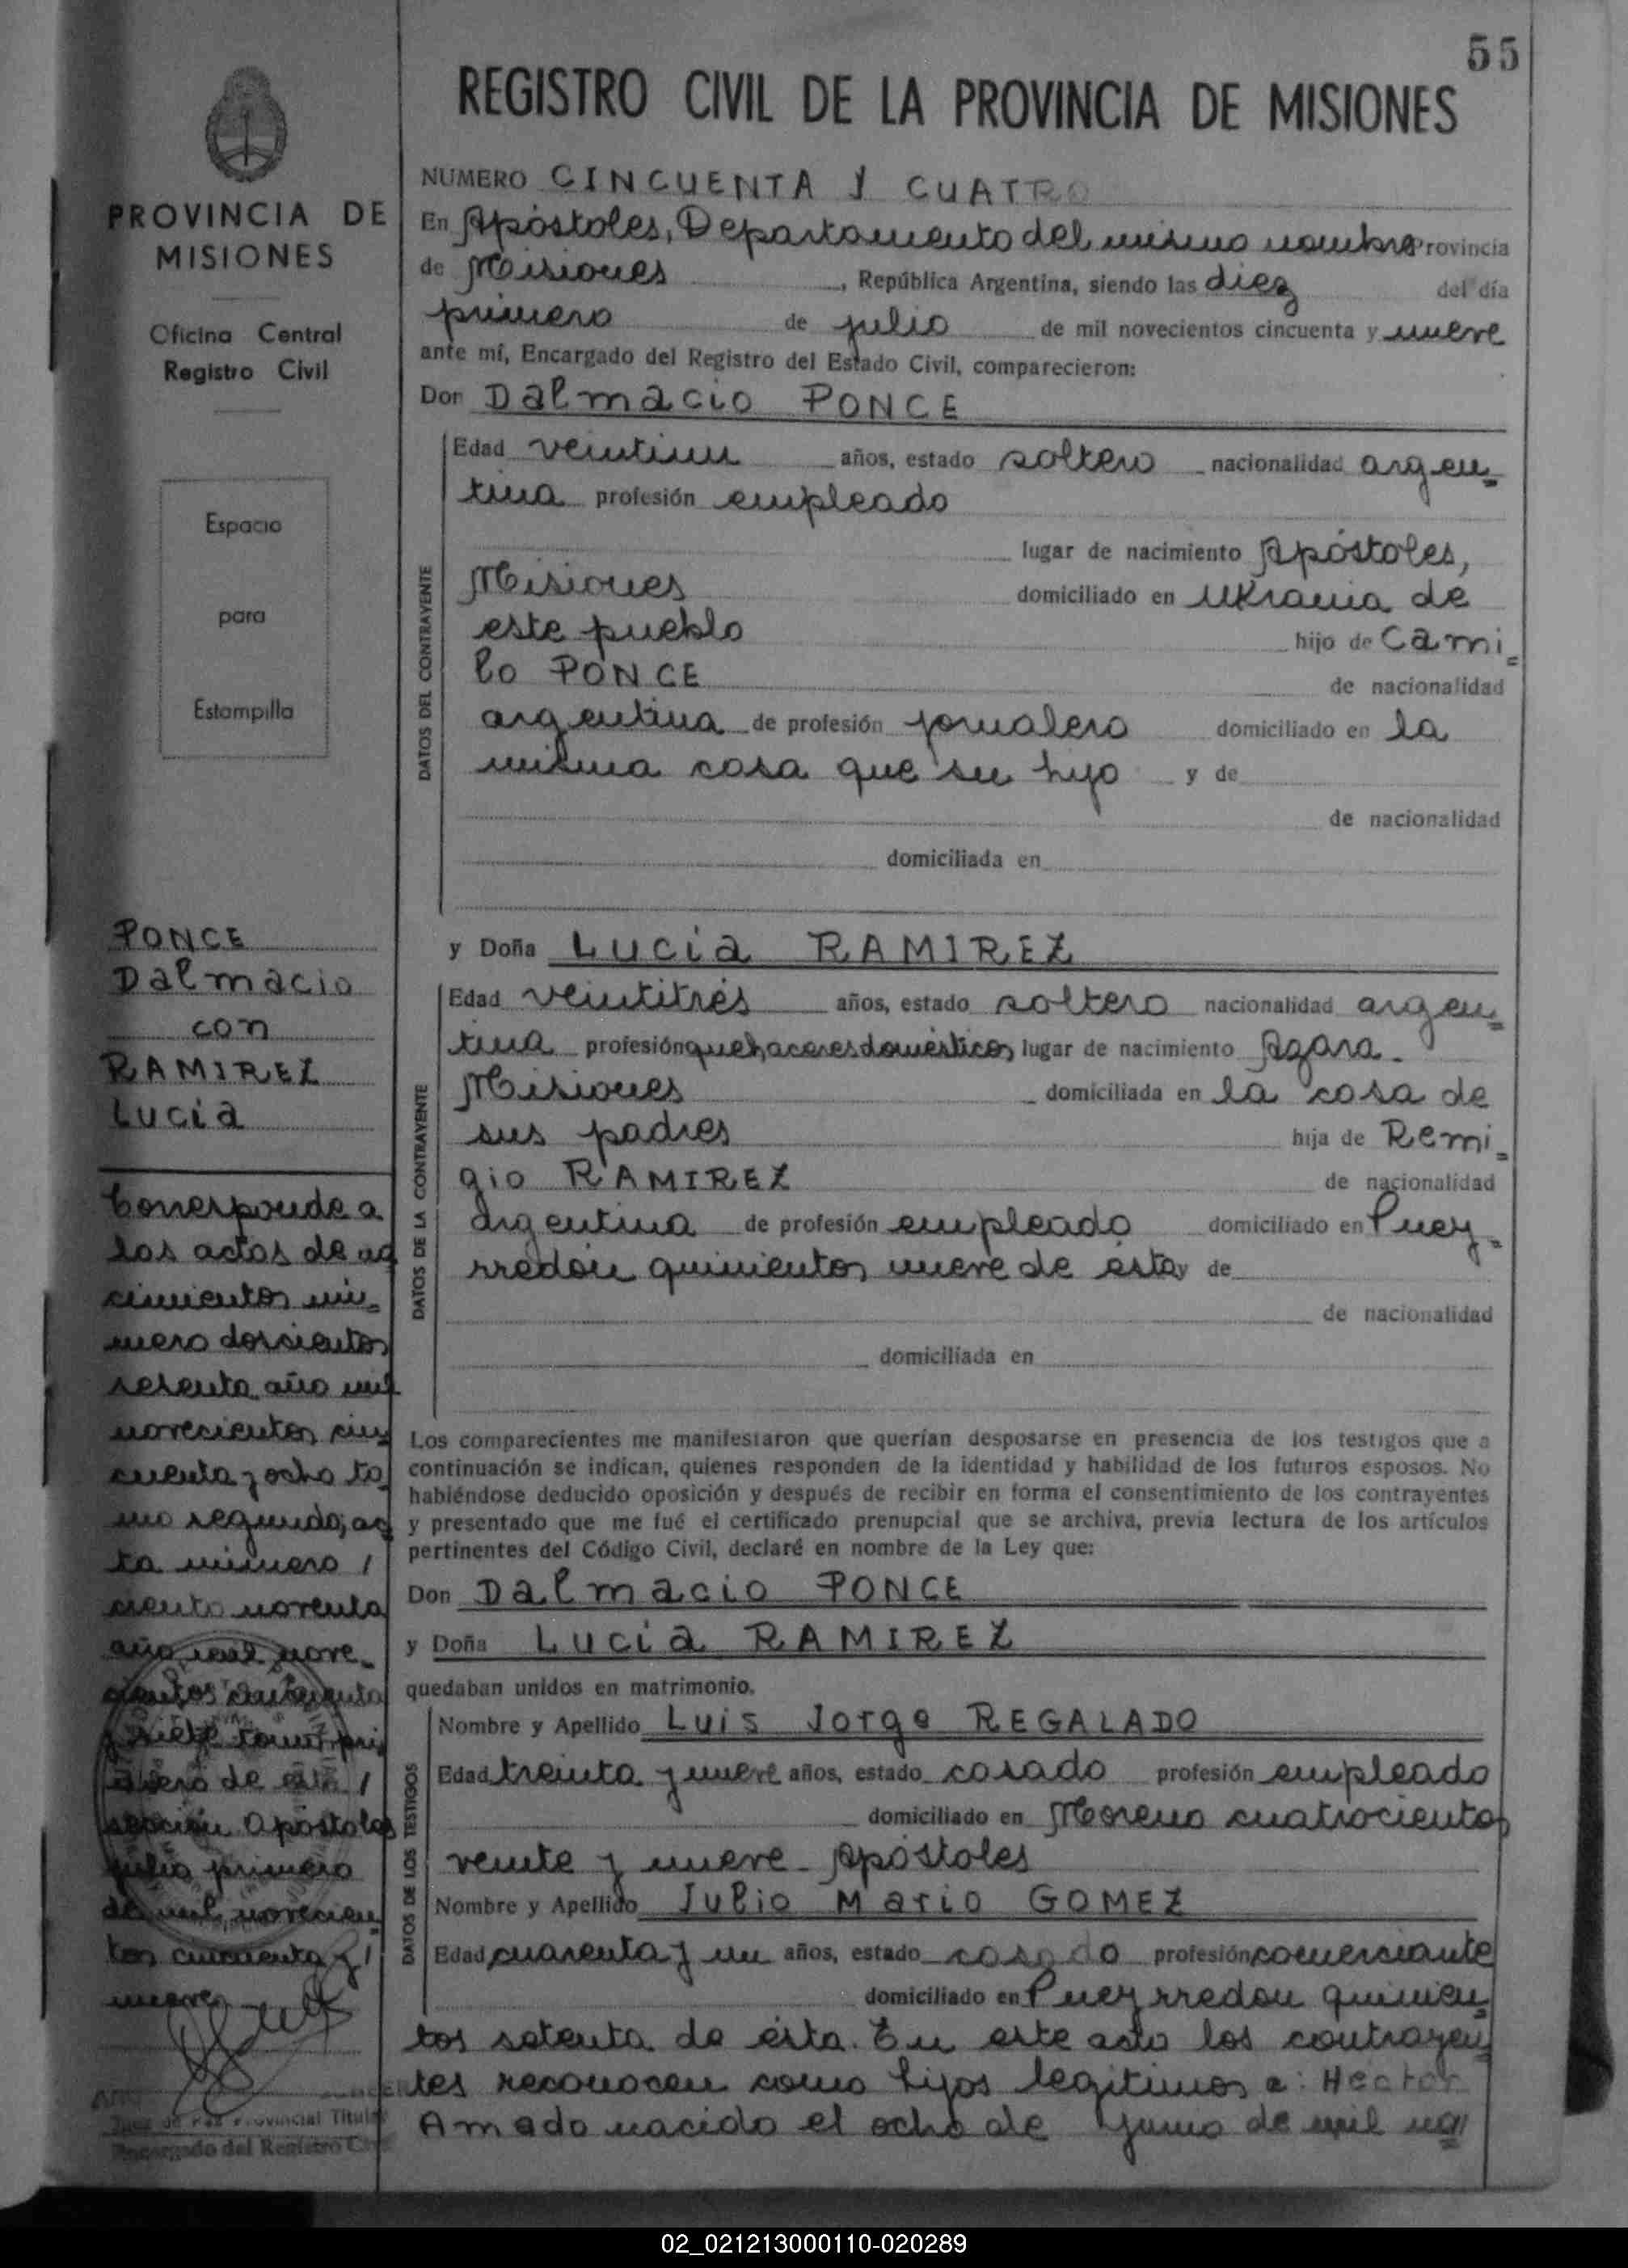 55
REGISTRO CIVIL DE LA PROVINCIA DE MISIONES
PROVINCIA DE
MISIONES
Oficina Central
Registro Civil
Espacio
para
Estampilla
PONCE
Dalmacio
con
RAMIREZ
Lucía
Corresponde a
las actas de na
cimientos nú=
mero doscientos
sesenta año mil
novecientos cin
cuenta y ocho to
mo segundo; ac
ta número /
ciento noventa
año mil nove=
cientos cincuenta
y siete tomo pri
mero de esta /
sección Apóstoles
julio primero
de mil novecien
tos cincuenta y /
nueve
Juez de Paz Provincial Titular
Encargado del Registro Civil
NUMERO CINCUENTA Y CUATRO
En Apóstoles, Departamento del mismo nombre Provincia
de Misiones, República Argentina, siendo las diez del día
primero de julio de mil novecientos cincuenta y nueve
ante mí, Encargado del Registro del Estado Civil, comparecieron:
Don Dalmacio PONCE
DATOS DEL CONTRAYENTE
Edad veintiun años, estado soltero nacionalidad argen=
tina profesión empleado
lugar de nacimiento Apóstoles,
Misiones domiciliado en Ukrania de
este pueblo hijo de Cami=
lo PONCE de nacionalidad
argentina de profesión jornalero domiciliado en la
misma casa que su hijo y de
de nacionalidad
domiciliada en
y Doña Lucía RAMIREZ
DATOS DE LA CONTRAYENTE
Edad veintitrés años, estado soltero nacionalidad argen=
tina profesión quehaceres domésticos lugar de nacimiento Azara-
Misiones domiciliada en la casa de
sus padres hija de Remi=
gio RAMIREZ de nacionalidad
argentina de profesión empleado domiciliado en Puey=
rredón quinientos nueve de ésta y de
de nacionalidad
domiciliada en
Los comparecientes me manifestaron que querían desposarse en presencia de los testigos que a
continuación se indican, quienes responden de la identidad y habilidad de los futuros esposos. No
habiéndose deducido oposición y después de recibir en forma el consentimiento de los contrayentes
y presentado que me fué el certificado prenupcial que se archiva, previa lectura de los artículos
pertinentes del Código Civil, declaré en nombre de la Ley que:
Don Dalmacio PONCE
y Doña Lucía RAMIREZ
quedaban unidos en matrimonio.
DATOS DE LOS TESTIGOS
Nombre y Apellido Luis Jorge REGALADO
Edad treinta y nueve años, estado casado profesión empleado
domiciliado en Moreno cuatrocientos
veinte y nueve - Apóstoles
Nombre y Apellido Julio Mario GOMEZ
Edad cuarenta y un años, estado casado profesión comerciante
domiciliado en Pueyrredon quinien=
tos setenta de ésta. En este acto los contrayen
tes reconocen como hijos legítimos a: Hector
Amado nacido el ocho de junio de mil no
02_021213000110-020289